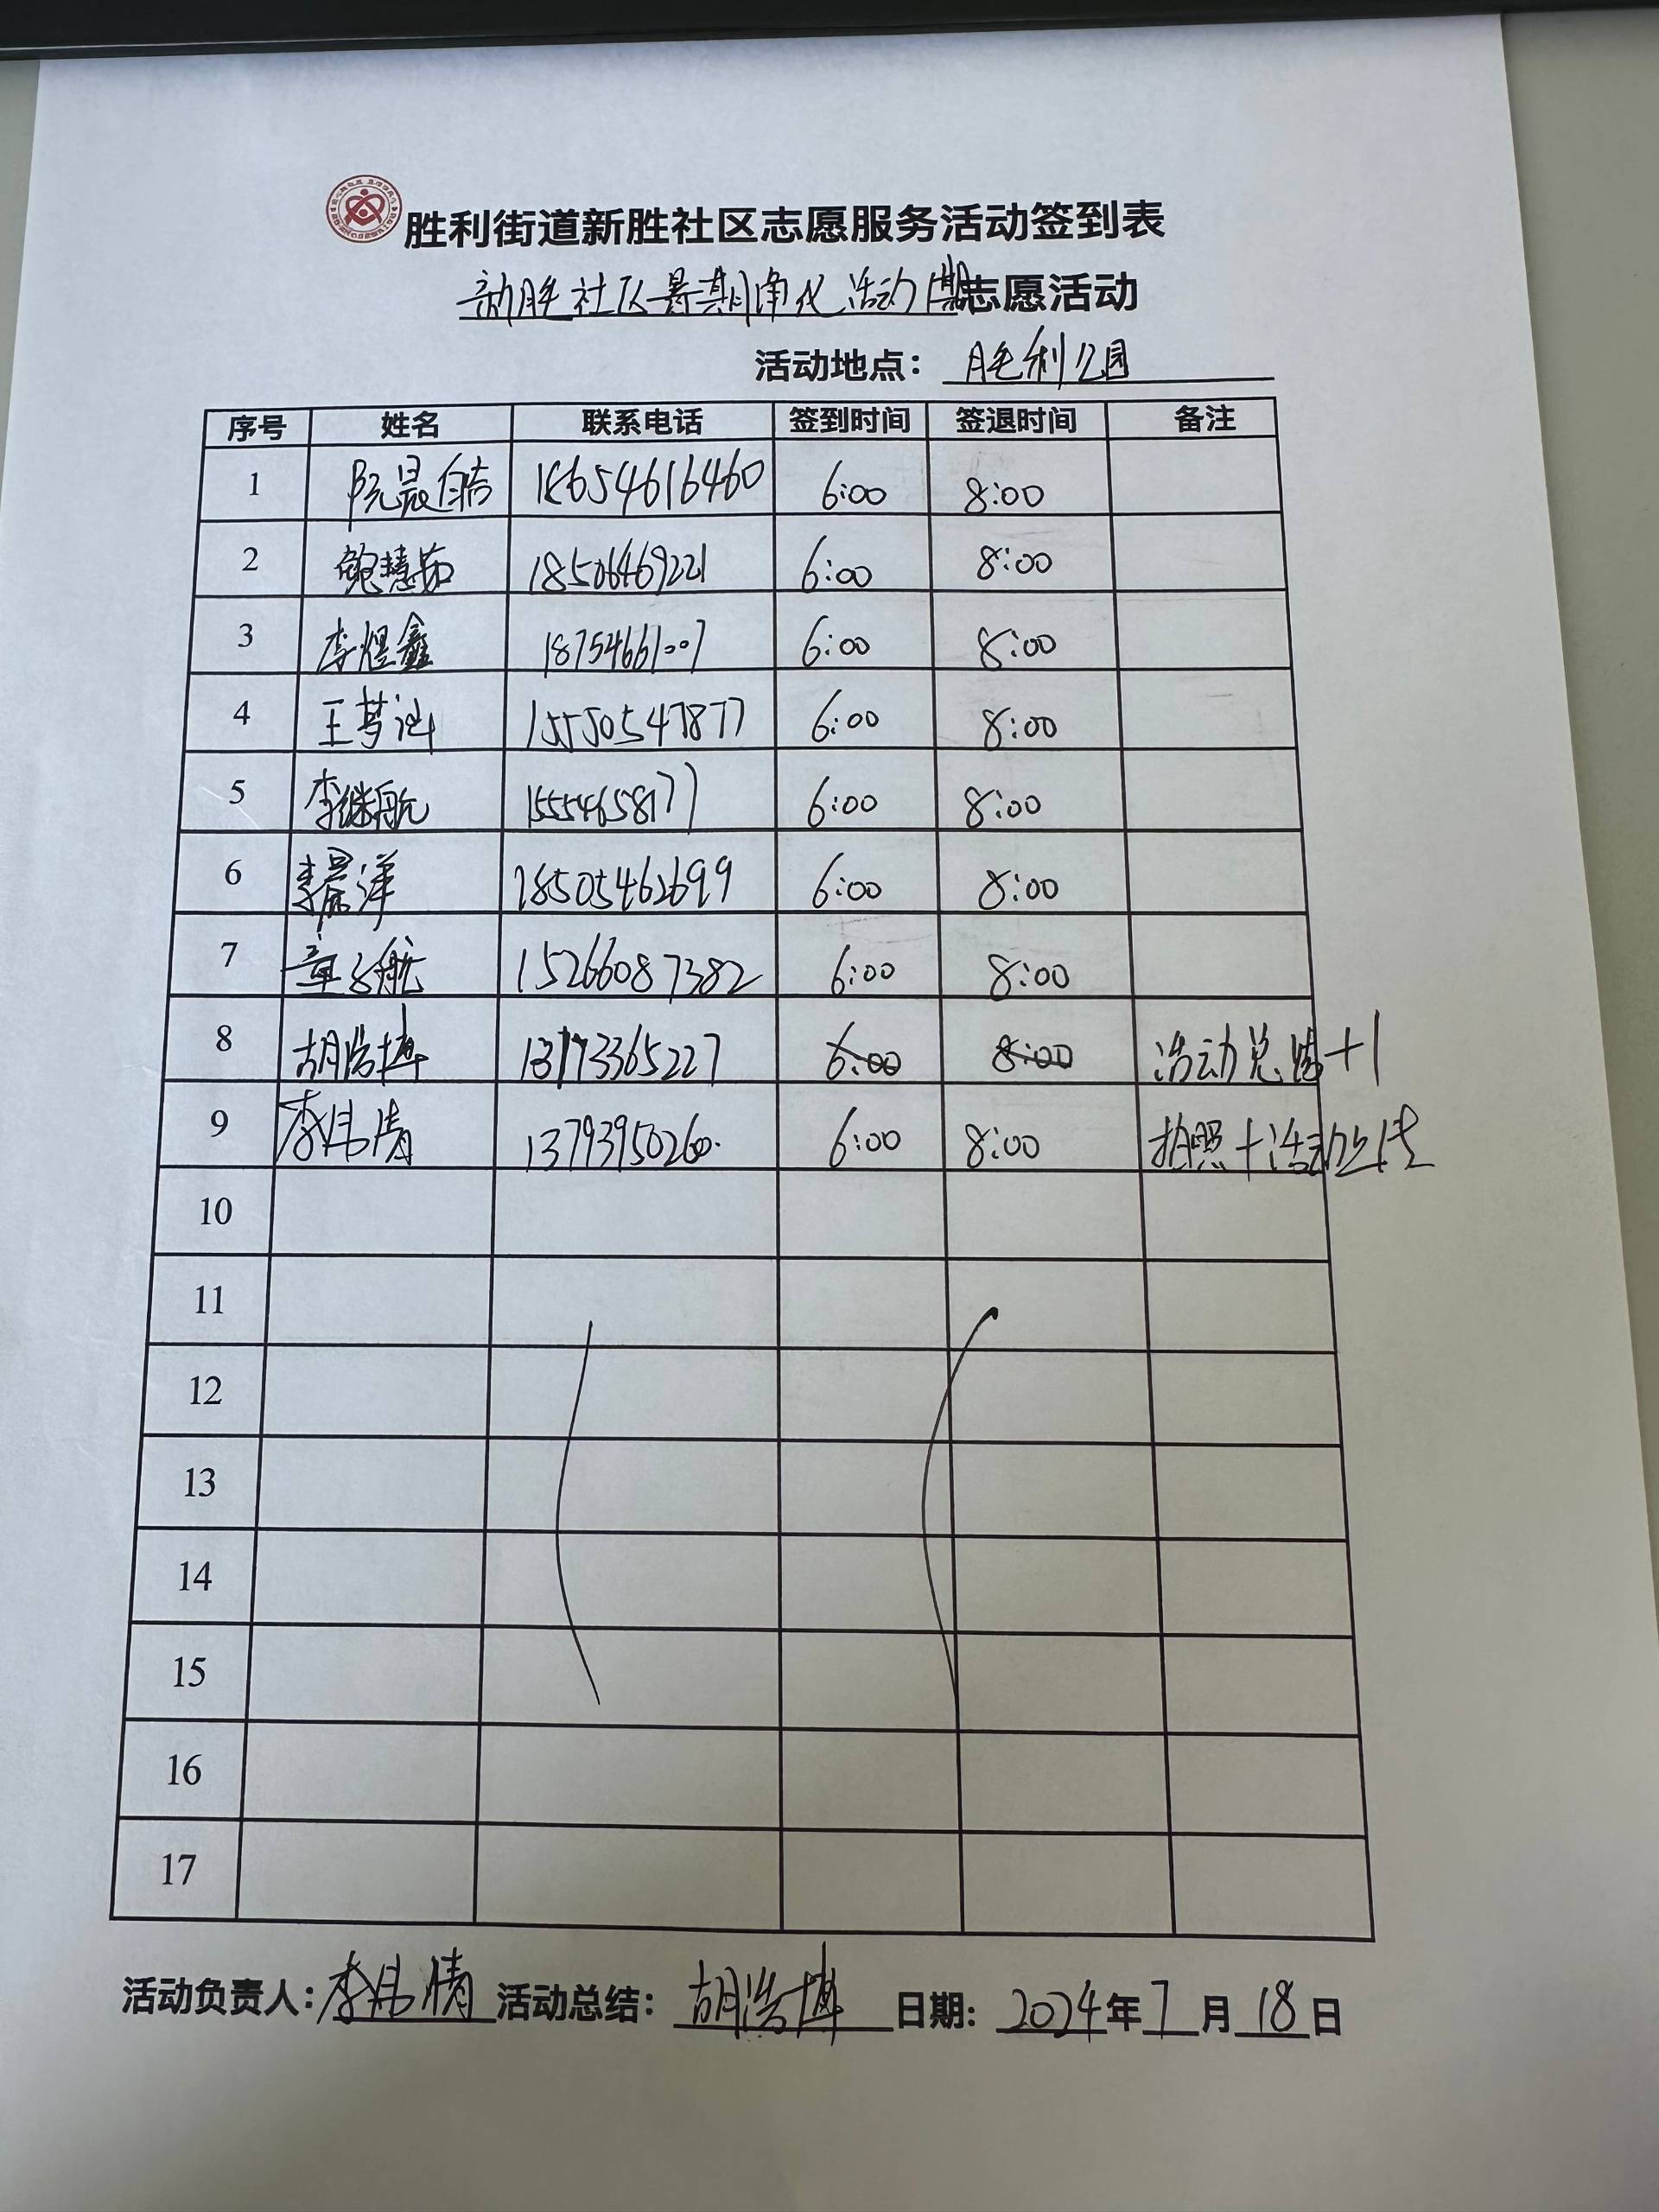 胜利街道新胜社区志愿服务活动签到表
新胜社区暑期净化活动1期志愿活动
活动地点：胜利公园
序号 姓名 联系电话 签到时间 签退时间 备注
1 阮晨皓 18654616460 6:00 8:00
2 鲍慧茹 18506469221 6:00 8:00
3 李煜鑫 18754661007 6:00 8:00
4 王梦汕 15550547877 6:00 8:00
5 李继航 15554658177 6:00 8:00
6 李晨洋 18505462699 6:00 8:00
7 童子航 15266087382 6:00 8:00
8 胡浩博 13173365227 6:00 8:00 活动总结+1
9 李伟倩 13793950260 6:00 8:00 拍照+活动上传
10
11
12
13
14
15
16
17
活动负责人：李伟倩 活动总结：胡浩博 日期：2024年7月18日